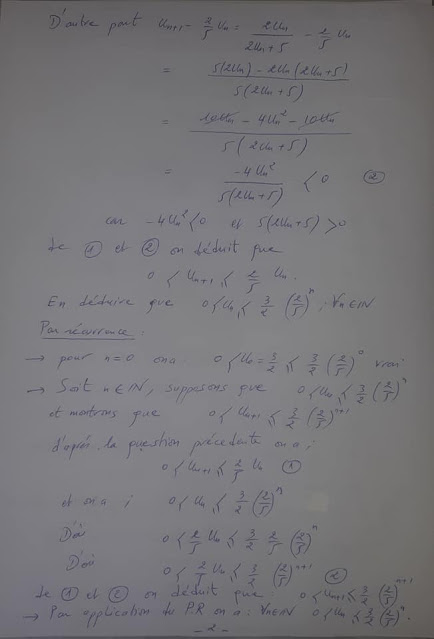 D'autre part Un+1 - 2/5 Un = 2Un/(2Un+5) - 2/5 Un
= (5(2Un) - 2Un(2Un+5))/(5(2Un+5))
= (10Un - 4Un² - 10Un)/(5(2Un+5))
= -4Un²/(5(2Un+5)) < 0 ②
car -4Un² < 0 et 5(2Un+5) > 0
de ① et ② on déduit que
0 < Un+1 ≤ 2/5 Un.
En déduire que 0 < Un ≤ 3/2 (2/5)^n ; ∀n∈IN
Par récurrence :
→ pour n=0 on a 0 < U0 = 3/2 ≤ 3/2 (2/5)^0 vrai
→ Soit n∈IN, supposons que 0 < Un ≤ 3/2 (2/5)^n
et montrons que 0 < Un+1 ≤ 3/2 (2/5)^n+1
d'après la question précedente on a ;
0 < Un+1 ≤ 2/5 Un ①
et on a ; 0 < Un ≤ 3/2 (2/5)^n
D'où 0 < 2/5 Un ≤ 3/2 2/5 (2/5)^n
D'où 0 < 2/5 Un ≤ 3/2 (2/5)^n+1 ②
de ① et ② on déduit que : 0 < Un+1 ≤ 3/2 (2/5)^n+1
→ Par application du P.R on a : ∀n∈IN 0 < Un ≤ 3/2 (2/5)^n.
- 2 -